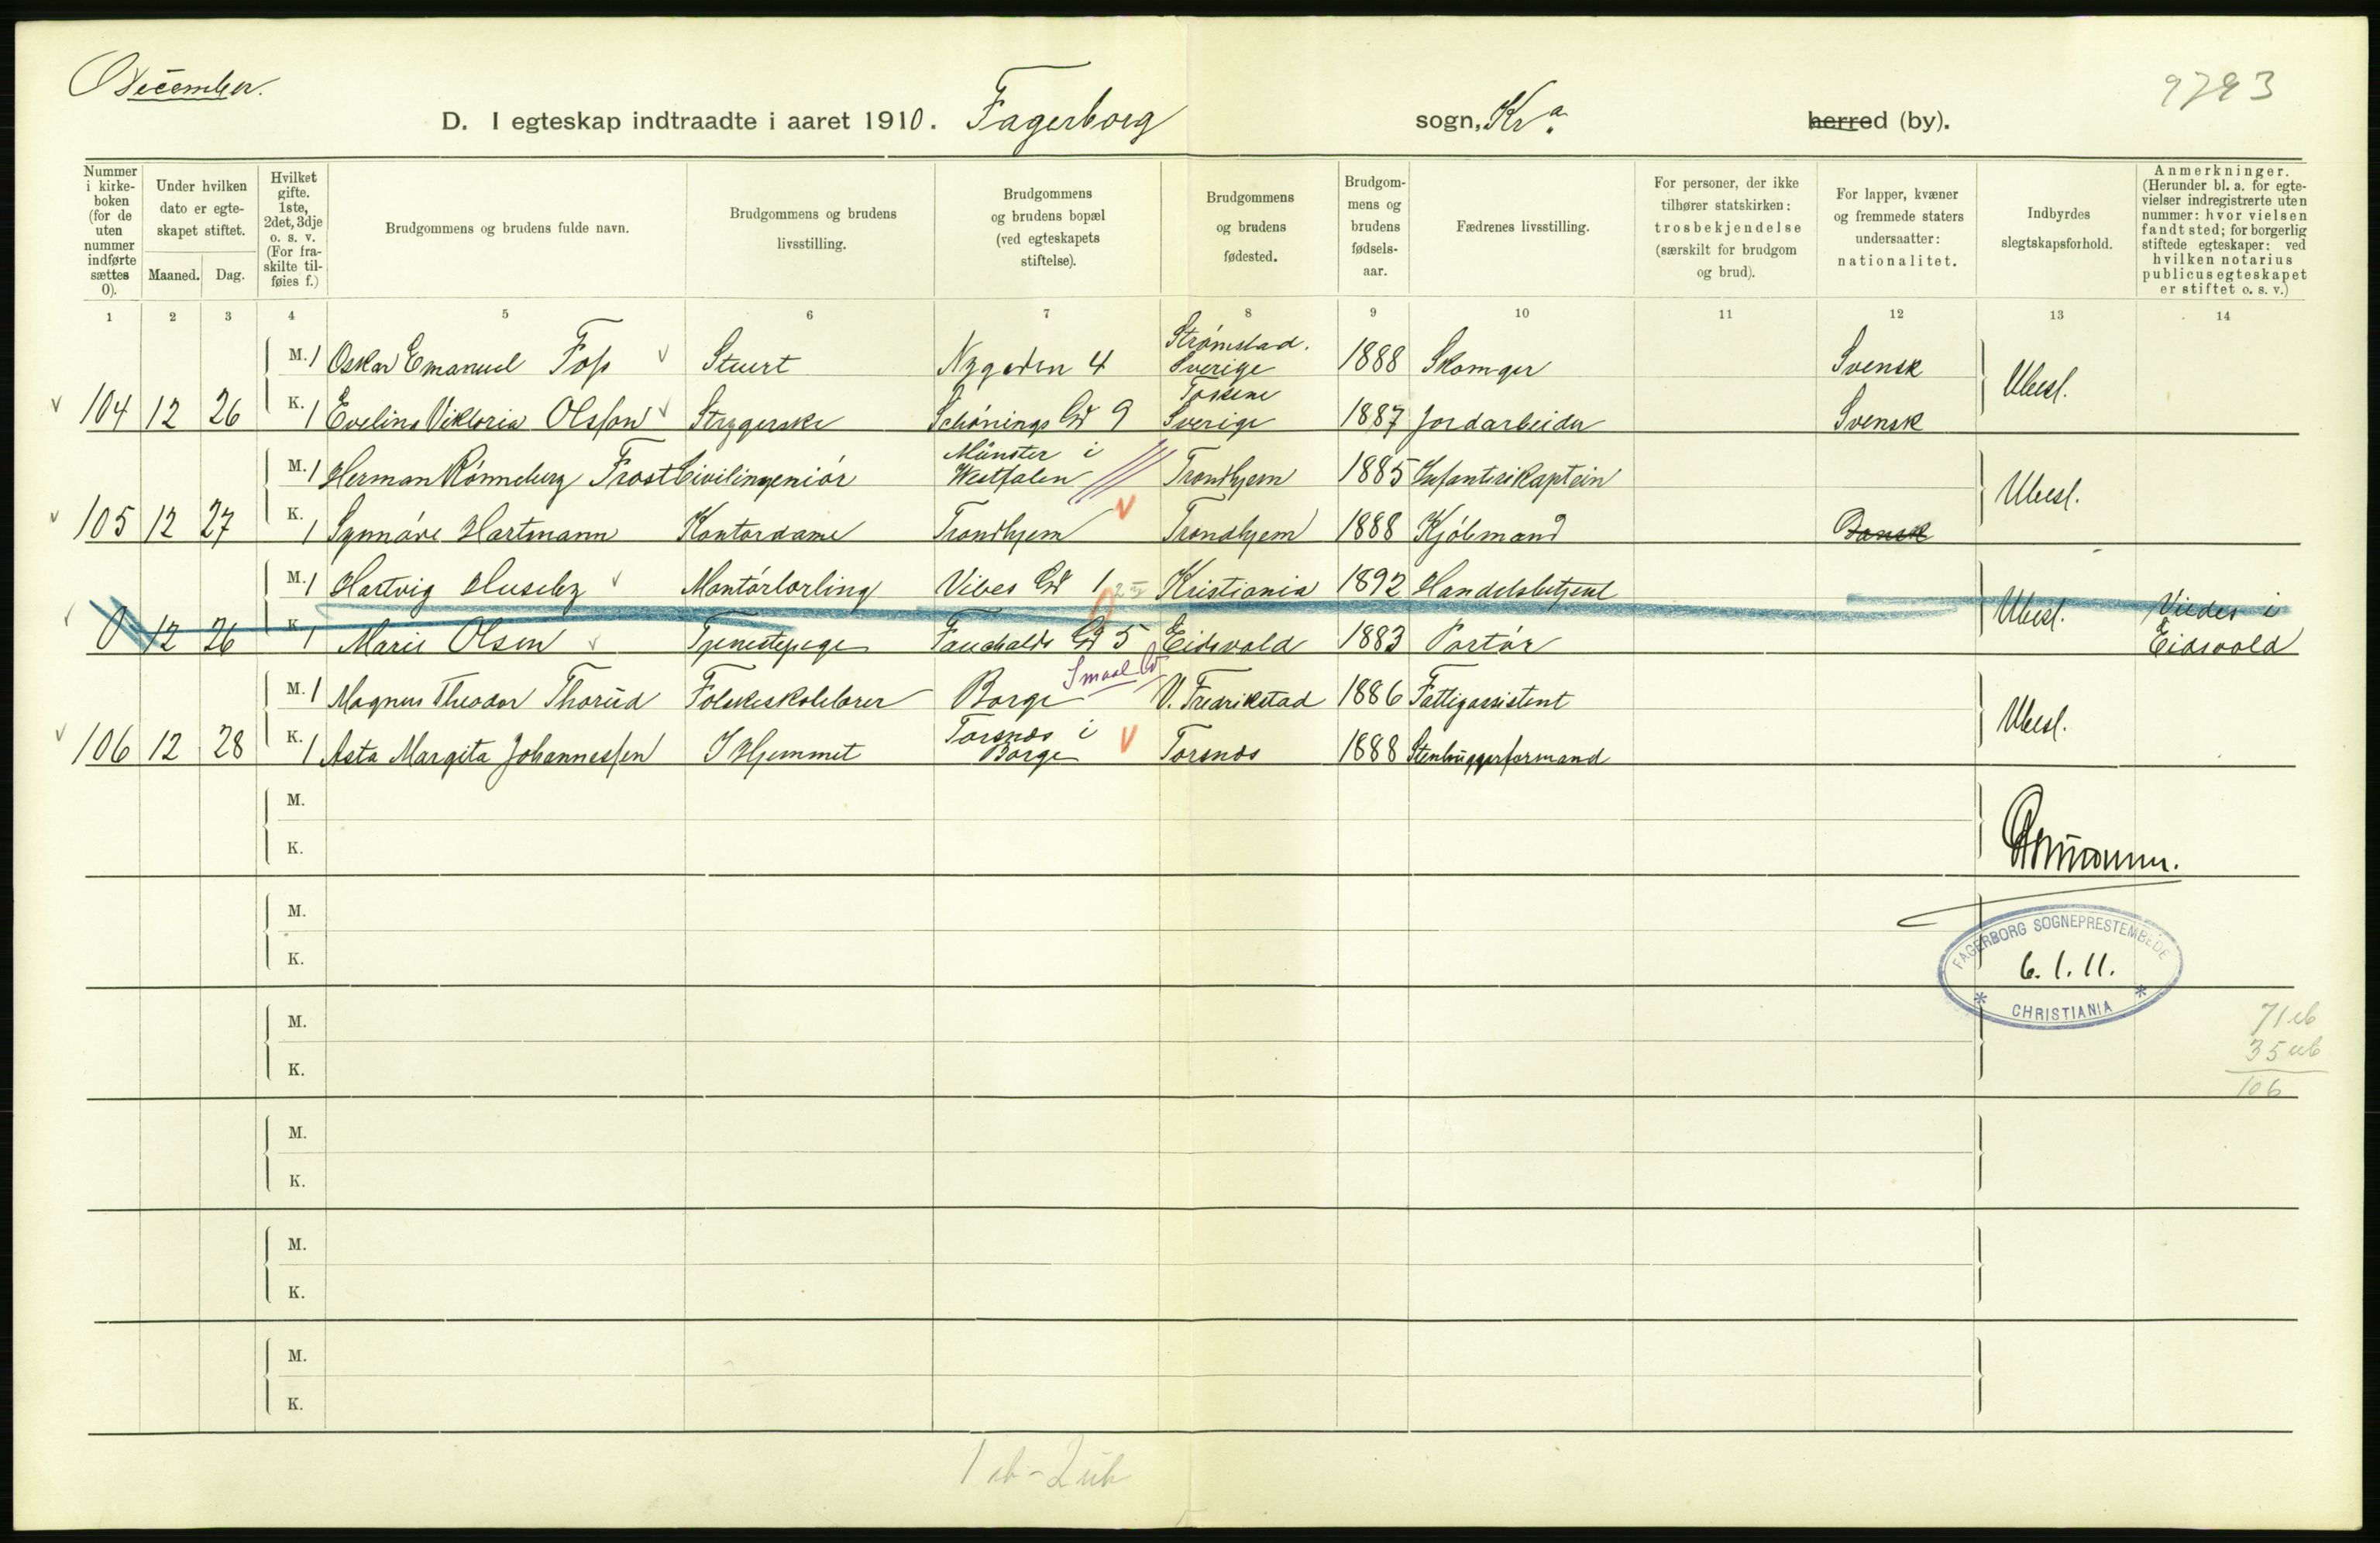 December.
9793
D. I egteskap indtraadte i aaret 1910. Fagerborg sogn, Kr.a herred (by).
Nummer i kirkeboken (for de uten nummer indførte sættes 0).
Under hvilken dato er egteskapet stiftet.
Maaned. Dag.
Hvilket gifte. 1ste, 2det, 3dje o. s. v. (For fraskilte tilføies f.)
Brudgommens og brudens fulde navn.
Brudgommens og brudens livsstilling.
Brudgommens og brudens bopæl (ved egteskapets stiftelse).
Brudgommens og brudens fødested.
Brudgommens og brudens fødselsaar.
Fædrenes livsstilling.
For personer, der ikke tilhører statskirken: trosbekjendelse (særskilt for brudgom og brud).
For lapper, kvæner og fremmede staters undersaatter: nationalitet.
Indbyrdes slegtskapsforhold.
Anmerkninger. (Herunder bl. a. for egtevielser indregistrerte uten nummer: hvor vielsen fandt sted; for borgerlig stiftede egteskaper: ved hvilken notarius publicus egteskapet er stiftet o. s. v.)
1 2 3 4 5 6 7 8 9 10 11 12 13 14
M. 1 Oskar Emanuel Foss Stuert Nygaden 4 Strømstad. Sverige 1888 Skomger Svensk
104 12 26 K. 1 Evelina Viktoria Olsson Strygerske Schønings Gd 9 Tossene Sverige 1887 Jordarbeider Svensk Ubesl.
M. 1 Herman Rønneberg Frost Civilingeniør Münster i Westfalen Trondhjem 1885 Infanterikaptein
105 12 27 K. 1 Synnøve Hartmann Kontordame Trondhjem Trondhjem 1888 Kjøbmand Dansk Ubesl.
M. 1 Hartvig Huseby Montørlærling Vibes Gd 1 Kristiania 1892 Handelsbetjent
0 12 26 K. 1 Marie Olsen Tjenestepige Fauchalds Gd 5 Eidsvold 1883 Portør Ubesl. Viedes i Eidsvold
Smaal.
M. 1 Magnus Theodor Thorud Folkeskolelærer Borge V. Fredrikstad 1886 Fattigassistent
106 12 28 K. 1 Asta Margita Johannessen I Hjemmet Torsnæs i Borge Torsnæs 1888 Stenhuggerformand Ubesl.
M.
K.
M.
K.
FAGERBORG SOGNEPRESTEMBEDE
6.1.11.
CHRISTIANIA
M.
K.
71 ub
35 ub
106
M.
K.
M.
K.
M.
K.